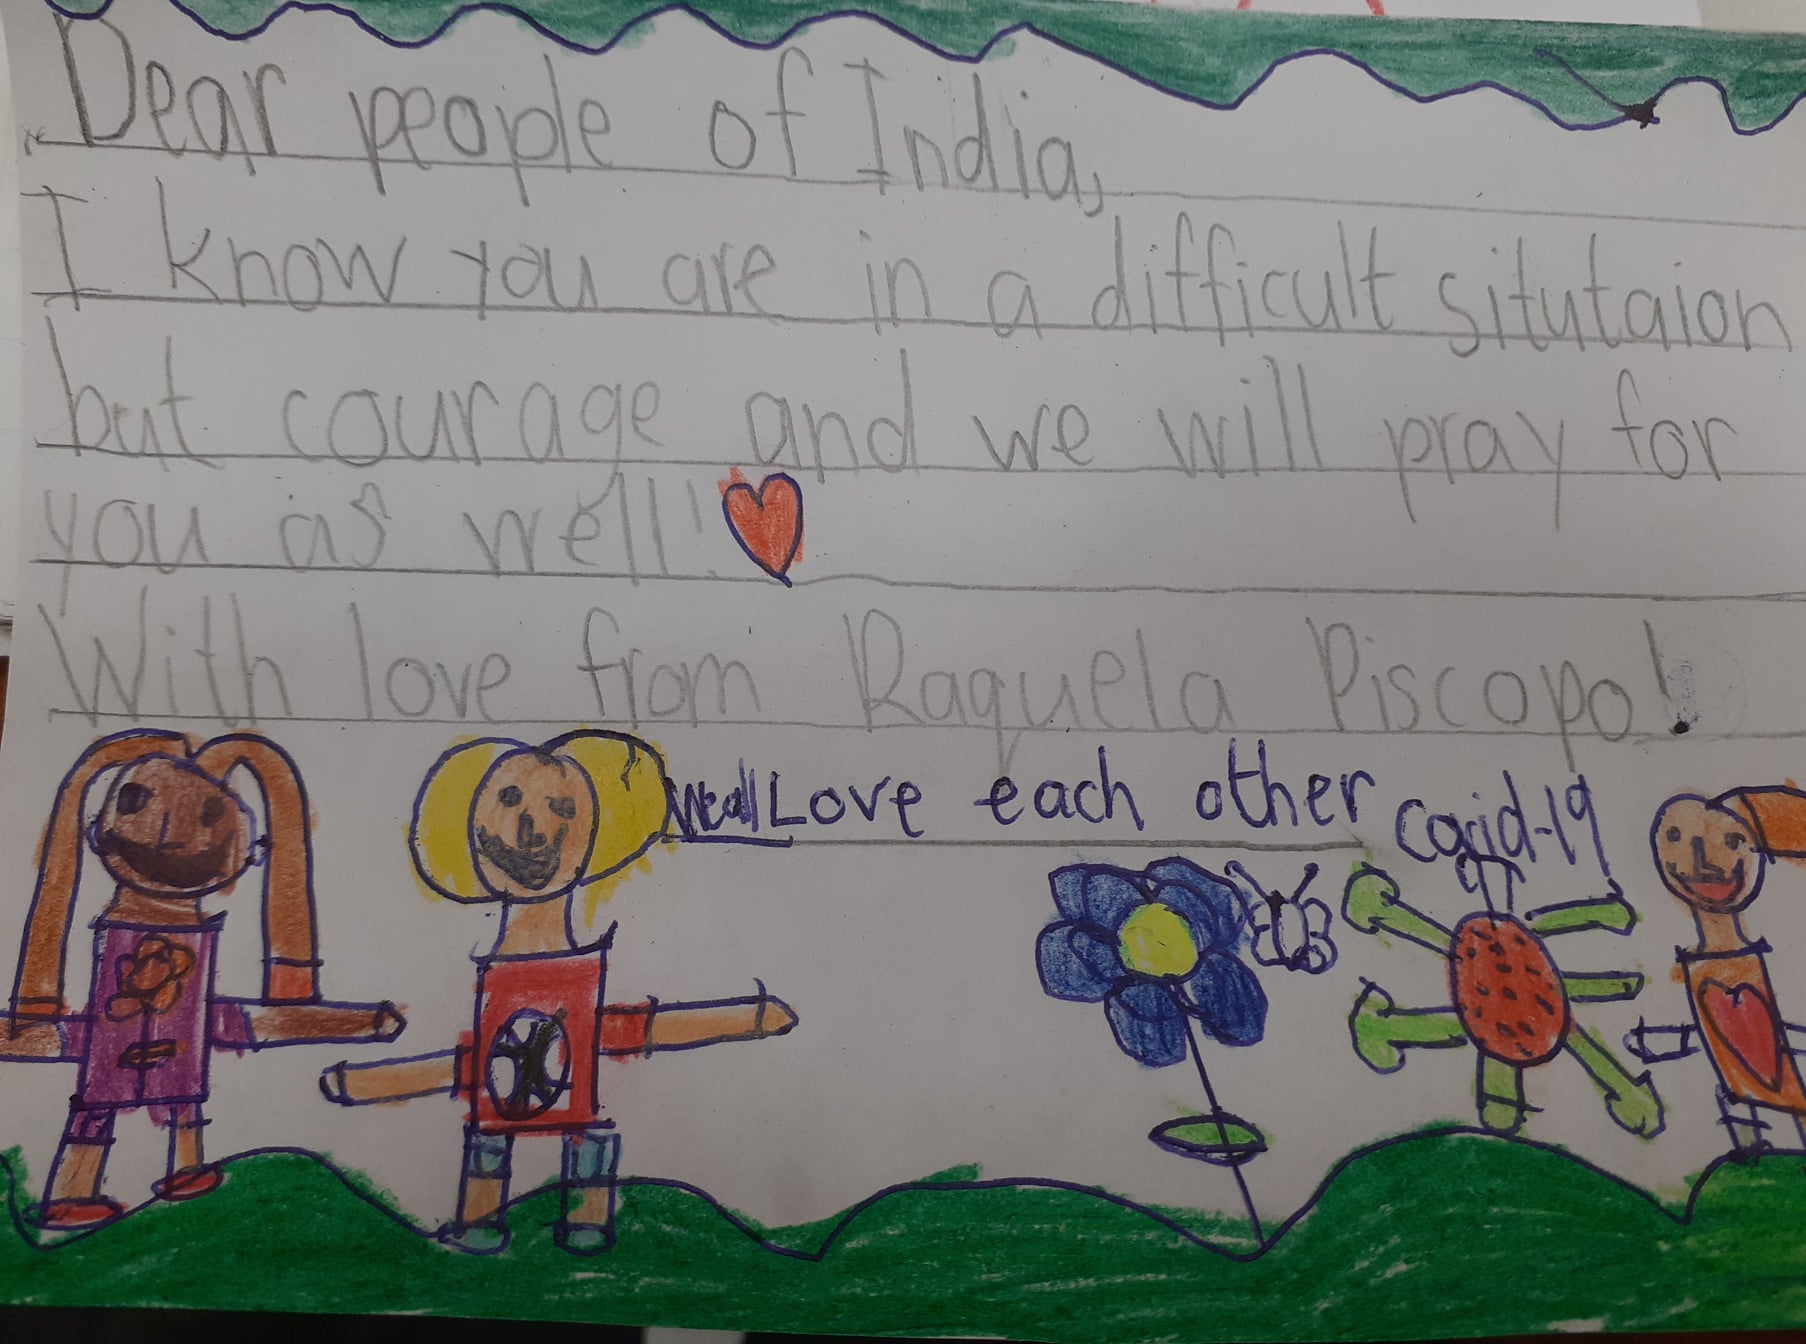 Dear people of India,
I know you are in a difficult situtaion
but courage and we will pray for
you as well!
With love from Raquela Piscopo!
We all Love each other
Covid-19